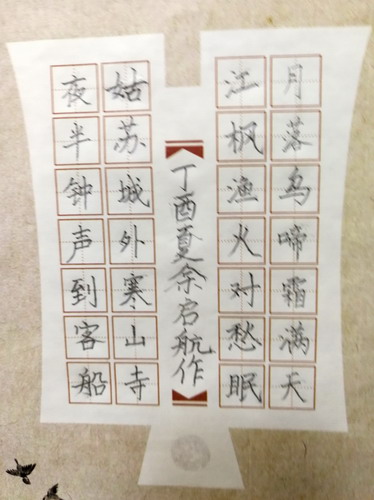 月落乌啼霜满天
江枫渔火对愁眠
姑苏城外寒山寺
夜半钟声到客船
丁酉夏余启航作